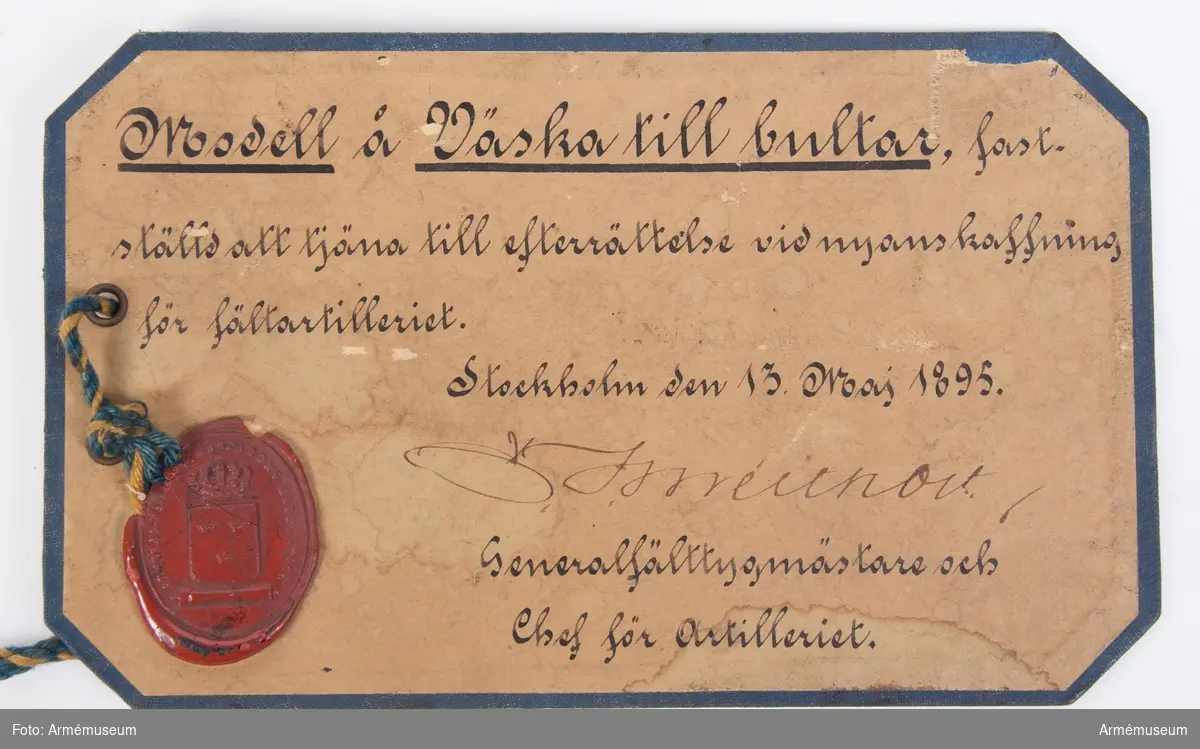 Modell å Väska till bultar, fast-
ställd att tjäna till efterrättelse vid nyanskaffning
för fältartilleriet.
Stockholm den 13. Maj 1895.
Generalfälttygmästare och
Chef för Artilleriet.
Foto: Armémuseum
Armémuseum